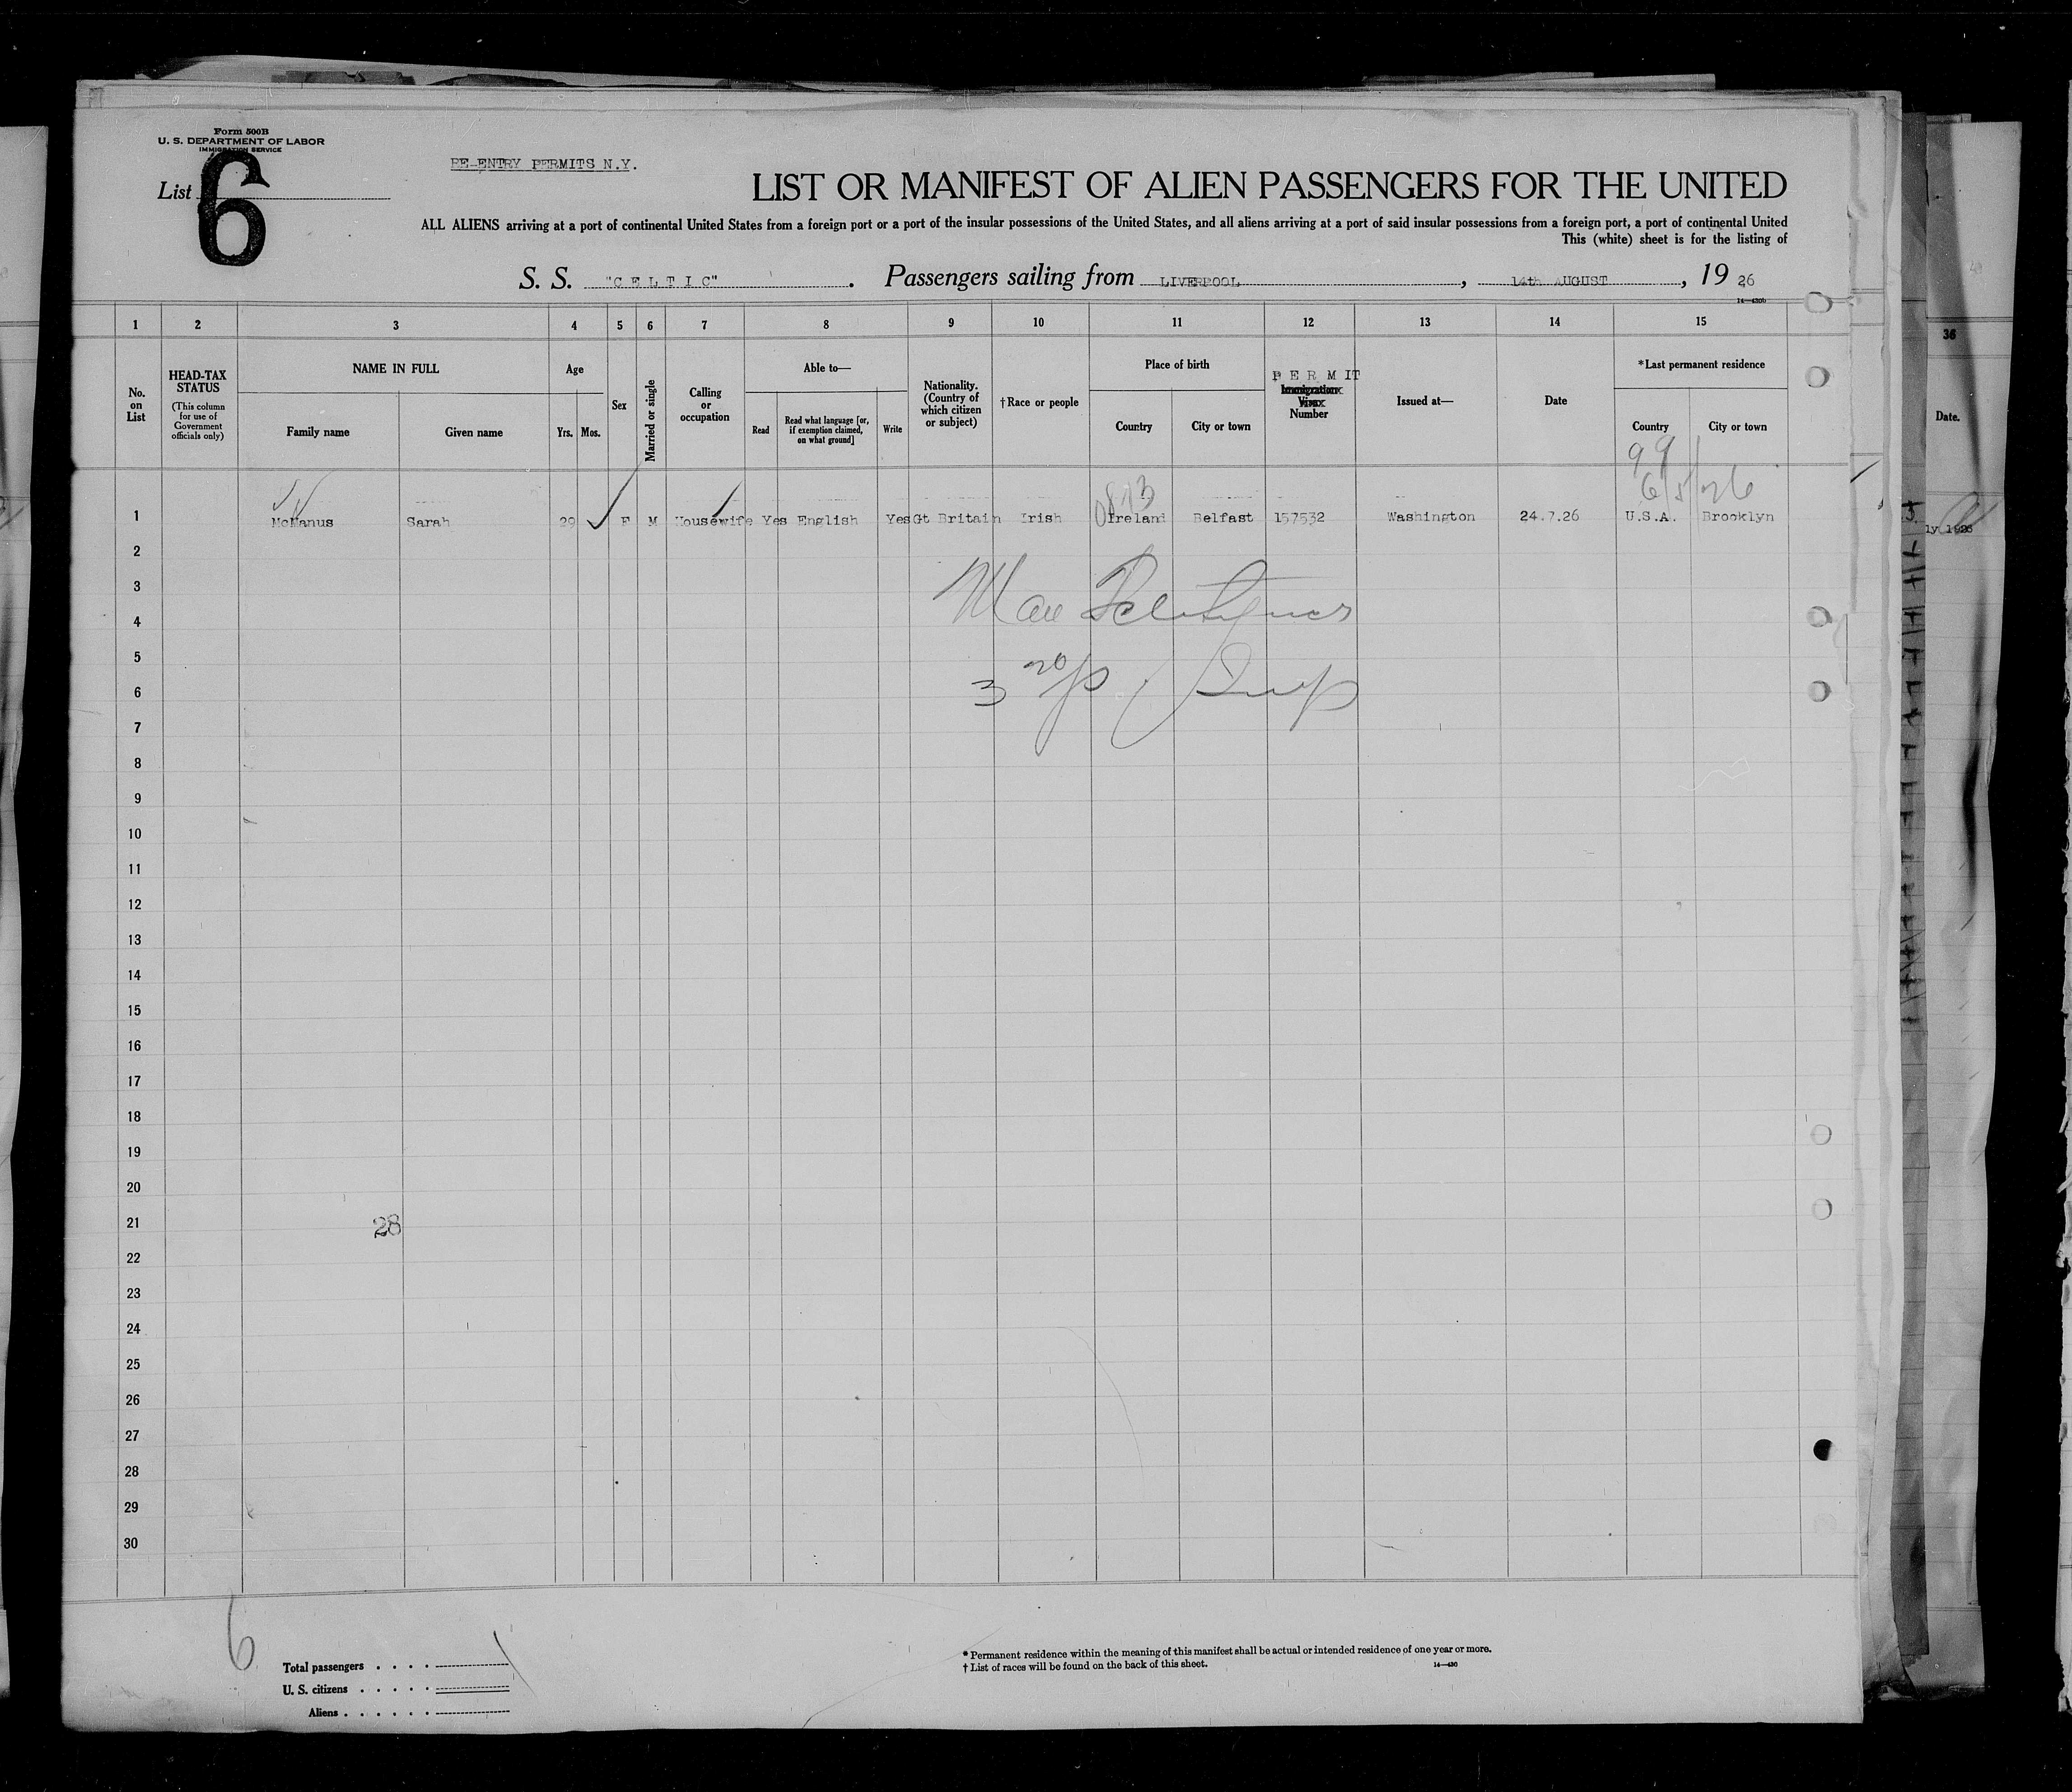 Form 500B
U. S. DEPARTMENT OF LABOR
IMMIGRATION SERVICE
List 6
RE-ENTRY PERMITS N.Y.
LIST OR MANIFEST OF ALIEN PASSENGERS FOR THE UNITED
ALL ALIENS arriving at a port of continental United States from a foreign port or a port of the insular possessions of the United States, and all aliens arriving at a port of said insular possessions from a foreign port, a port of continental United
This (white) sheet is for the listing of
S. S. "CELTIC". Passengers sailing from LIVERPOOL, 14th AUGUST, 1926
14—430b
1 2 3 4 5 6 7 8 9 10 11 12 13 14 15
36
No. on List
HEAD-TAX STATUS
(This column for use of Government officials only)
NAME IN FULL
Family name
Given name
Age
Yrs. Mos.
Sex
Married or single
Calling or occupation
Able to—
Read
Read what language [or, if exemption claimed, on what ground]
Write
Nationality. (Country of which citizen or subject)
†Race or people
Place of birth
Country
City or town
PERMIT
Immigration Visa
Number
Issued at—
Date
*Last permanent residence
Country
City or town
Date.
99
6/5/26
0873
1 McManus Sarah 29 F M Housewife Yes English Yes Gt Britain Irish Ireland Belfast 157532 Washington 24.7.26 U.S.A. Brooklyn
ly 1926
2
3
4
5
6
7
8
9
10
11
12
13
14
15
16
17
18
19
20
21
28
22
23
24
25
26
27
28
29
30
6
Total passengers
U. S. citizens
Aliens
* Permanent residence within the meaning of this manifest shall be actual or intended residence of one year or more.
† List of races will be found on the back of this sheet.
14—430